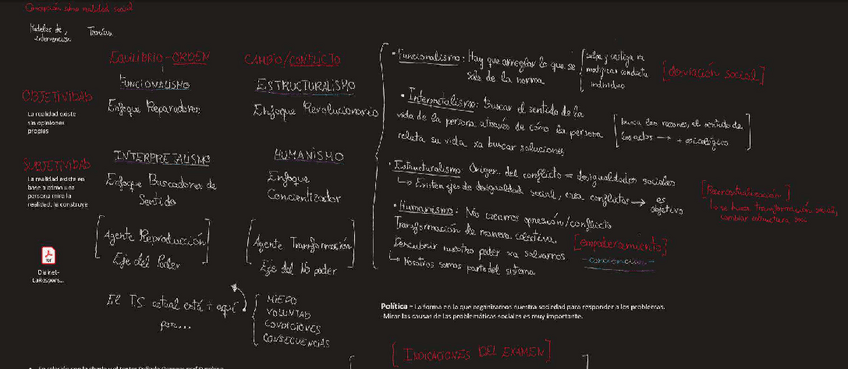 Concepción sobre realidad social
Modelos de intervención
Teorías
EQUILIBRIO - ORDEN
CAMBIO/CONFLICTO
FUNCIONALISMO
ESTRUCTURALISMO
OBJETIVIDAD
Enfoque Reparador
Enfoque Revolucionario
La realidad existe
sin opiniones
propias
SUBJETIVIDAD
INTERPRETALISMO
HUMANISMO
La realidad existe en
base a cómo una
persona mire la
realidad, la construye
Enfoque Buscadores de
Sentido
Enfoque
Concientizador
[Agente Reproducción]
Eje del Poder
[Agente Transformación]
Eje del No poder
El TS actual está + aquí
por...
MIEDO
VOLUNTAD
CONDICIONES
CONSECUENCIAS
• Funcionalismo: Hay que arreglar lo que se
sale de la norma
culpa y castiga xa
modificar conducta
individuo
[desviación social]
• Interpretalismo: Buscar el sentido de la
vida de la persona a través de cómo la persona
relata su vida xa buscar soluciones
busca las razones, el sentido de
los actos → + psicológico
• Estructuralismo Origen del conflicto = desigualdades sociales
↳ Existen ejes de desigualdad social, crea conflictos → es
objetivo
• Humanismo: No creamos opresión/conflicto
Transformación de manera colectiva
Descubrir nuestro poder xa salvarnos
↳ Nosotros somos parte del sistema
[empoderamiento]
Política - La forma en la que organizamos nuestra sociedad para responder a los problemas.
Mirar las causas de las problemáticas sociales es muy importante.
[INDICACIONES DEL EXAMEN]